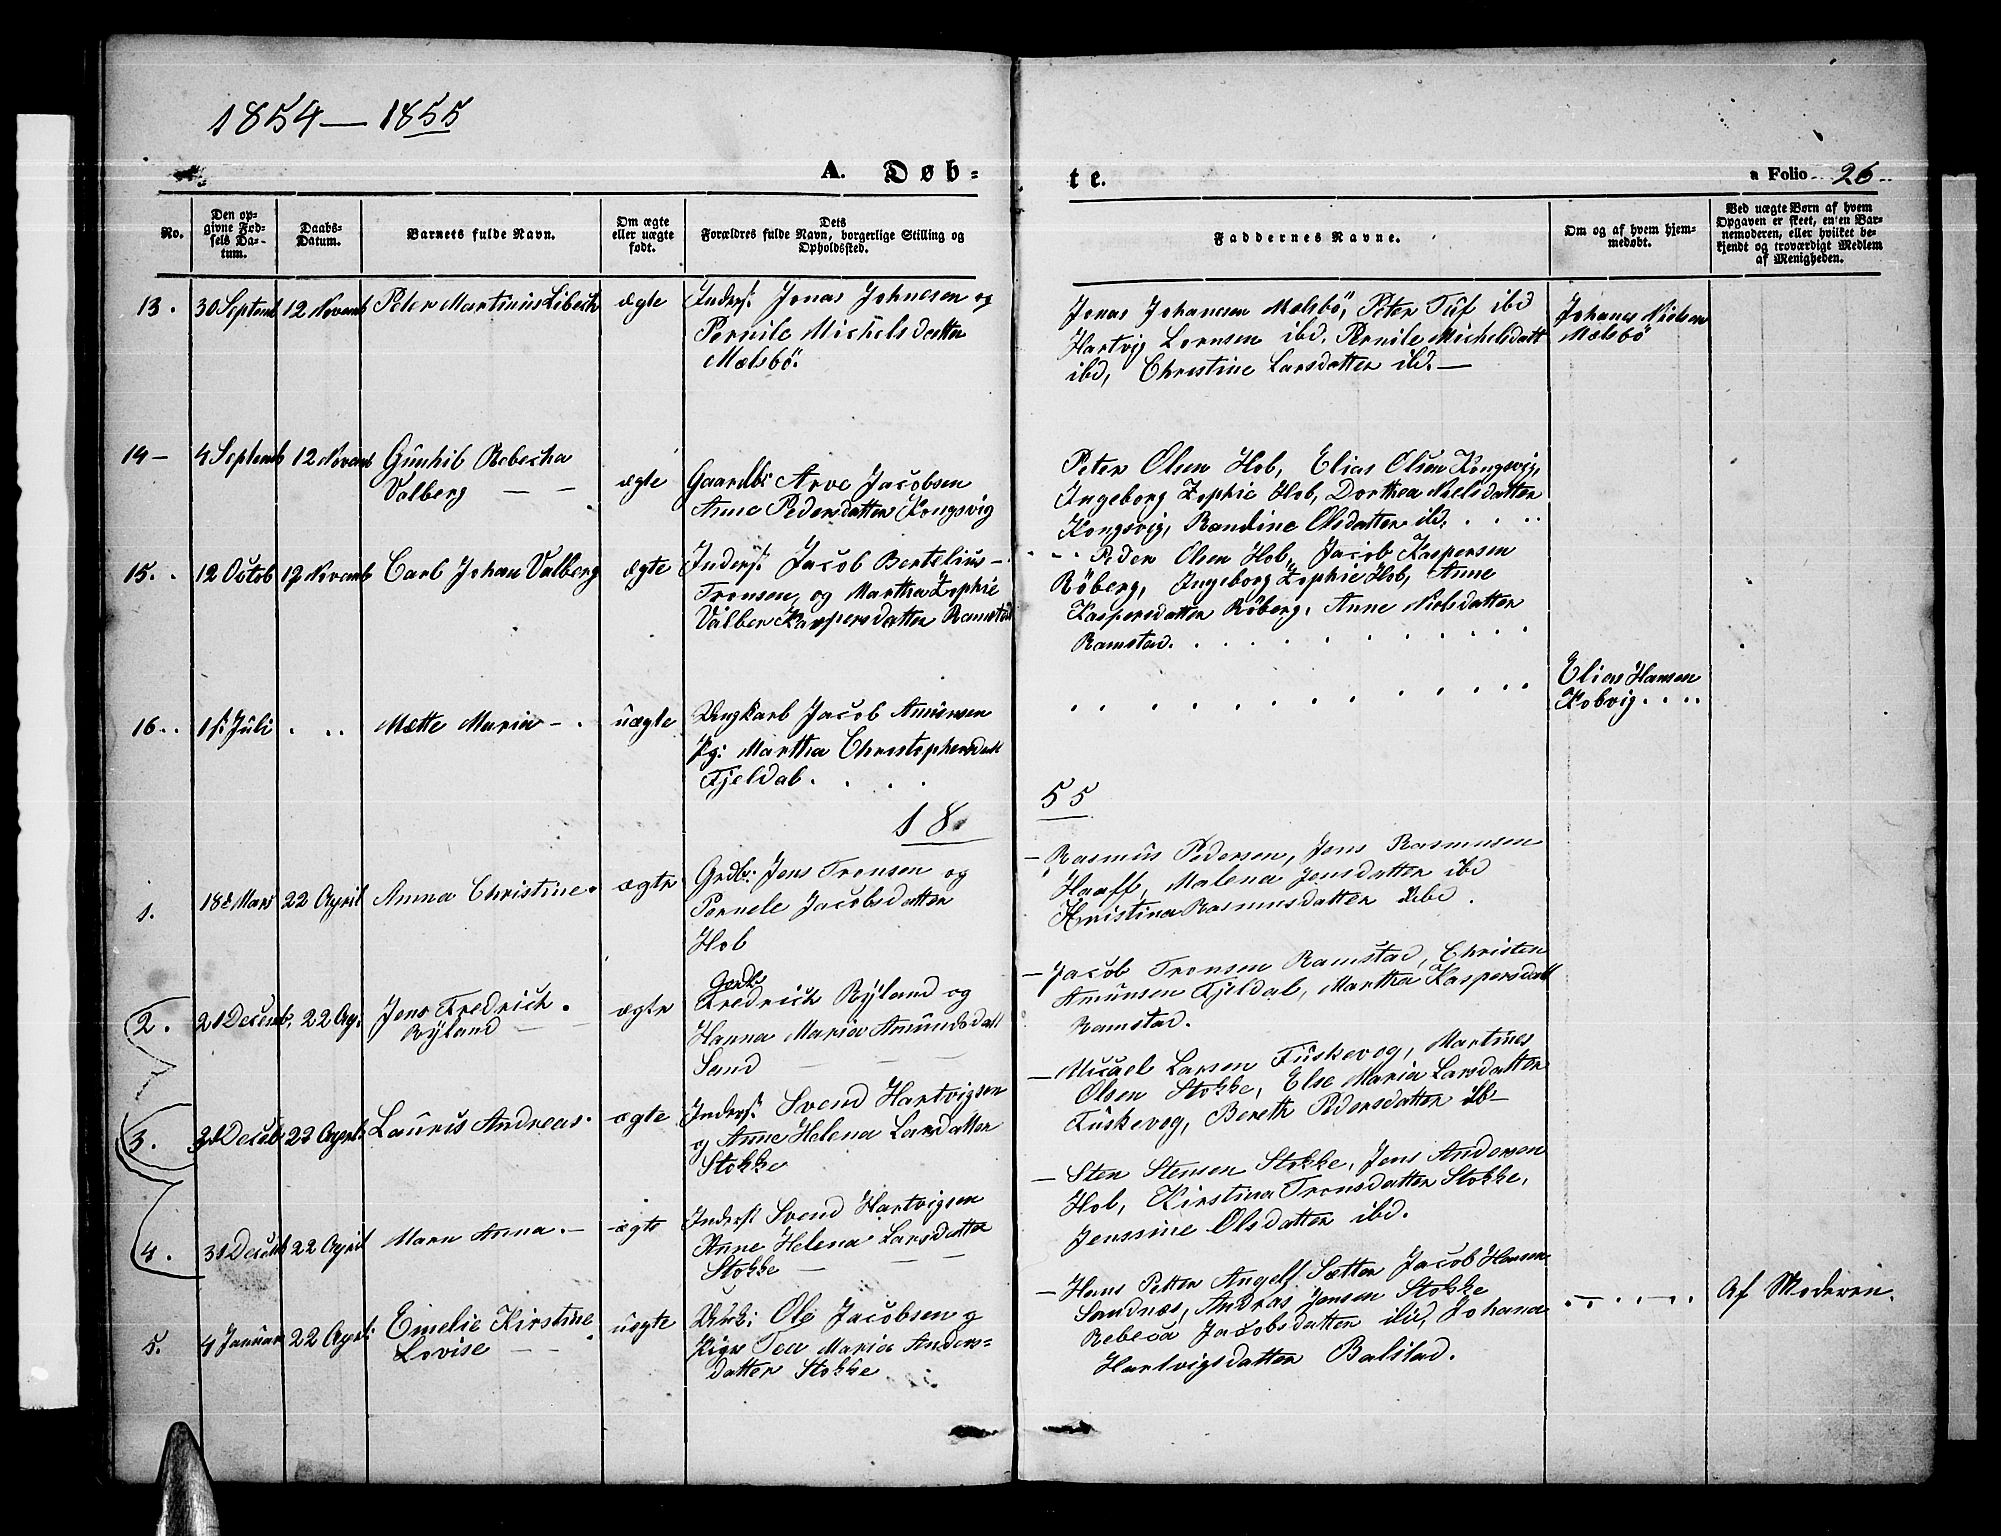 1854 — 1855
A. Døb-
te.
a Folio 26
No.
Den op-
givne Fød-
sels Da-
tum.
Daabs-
Datum.
Barnets fulde Navn.
Om ægte
eller uægte
født.
Dets
Forældres fulde Navn, borgerlige Stilling og
Opholdssted.
Faddernes Navne.
Om og af hvem hjem-
medøbt.
Ved uægte Børn af hvem
Opgaven er skeet, enten Bar-
nemoderen, eller hvilket be-
kjendt og troværdigt Medlem
af Menigheden.
13. 30 Septemb 12 Novemb Peter Martinus Libech ægte Inders: Jonas Johnesen og
Pernile Michelsdatter
Mælsbö.
Jonas Johanesen Mælsbö, Peter Tuf ibd
Hartvig Lornsen ibd, Pernile Michelsdatt
ibd, Christine Larsdatter ibd. —
Johanes Nielsen
Mælsbö
14 – 4 Septemb 12 Novemb Gunhil Rebecha
Valberg — — ægte Gaardb: Arve Jacobsen
Anne Pedersdatter Kongsvig
Peter Olsen Hob, Elias Olsen Kongsvig,
Ingeborg Zophie Hob, Dorthea Nielsdatter
Kongsvig, Randine Olsdatter ibd. . . . .
15. . 12 Octob 12 Novemb Carl Johan Valberg ægte Inders: Jacob Bertelius –
Tronsen, og Martha Zophie
Valber Kaspersdatter Ramstad
Peder Olsen Hob, Jacob Kaspersen
Röberg, Ingeborg Zophie Hob, Anne
Kaspersdatter Röberg, Anne Nielsdatter
Ramstad. . . . . . . . . . .
16. . 1st Juli . . . Mætte Maria – . uægte Ungkarl Jacob Amunsen
Pg: Martha Christophersdatt
Fjeldal. . . .
Elias Hansen
Kobvig . . . .
18 55
1. 18d Mars 22 April Anna Christine. ægte Grdb: Jens Tronsen og
Pernele Jacobsdatter
Hob
— Rasmus Pedersen, Jens Rasmusen
Haaff, Malena Jensdatter ibd
Kristina Rasmusdatter ibd.
2. 21 Decemb, 22 Apr. Jens Fredrich.
Ryland — — ægte Grdb
Fredrich Ryland og
Hanna Maria Amundsdatt
Sand — —
— Jacob Tronsen Ramstad, Christen
Amunsen Fjeldal, Martha Kaspersdatt
Ramstad.
3. 31 Deceb 22 April. Lauris Andreas. ægte Inders: Svend Hartvigsen
og Anne Helena Larsdatter
Stokke
— Micael Larsen Fuskevog, Martines
Olsen Stokke, Else Maria Larsdatter
Fuskevog, Bereth Pedersdatter ib–
4. 31 Deceb 22 April Maren Anna. – ægte Inders: Svend Hartvigsen
Anne Helena Larsdatter
Stokke — —
— Sten Stensen Stokke, Jens Andersen
Hob, Kirstina Tronsdatter Stokke,
Jenssine Olsdatter ibd.
5. 4 Januar 22 April: Emelie Kirstine
Lovise — — uægte Unk: Ole Jacobsen og
Pige Tea Maria Anders-
datter Stokke
— Hans Petter Angelf Sætter Jacob Hansen
Sandnæs, Andras Jensen Stokke
Rebeca Jacobsdatter ibd, Johana
Hartvigsdatter Balstad.
Af Moderen.